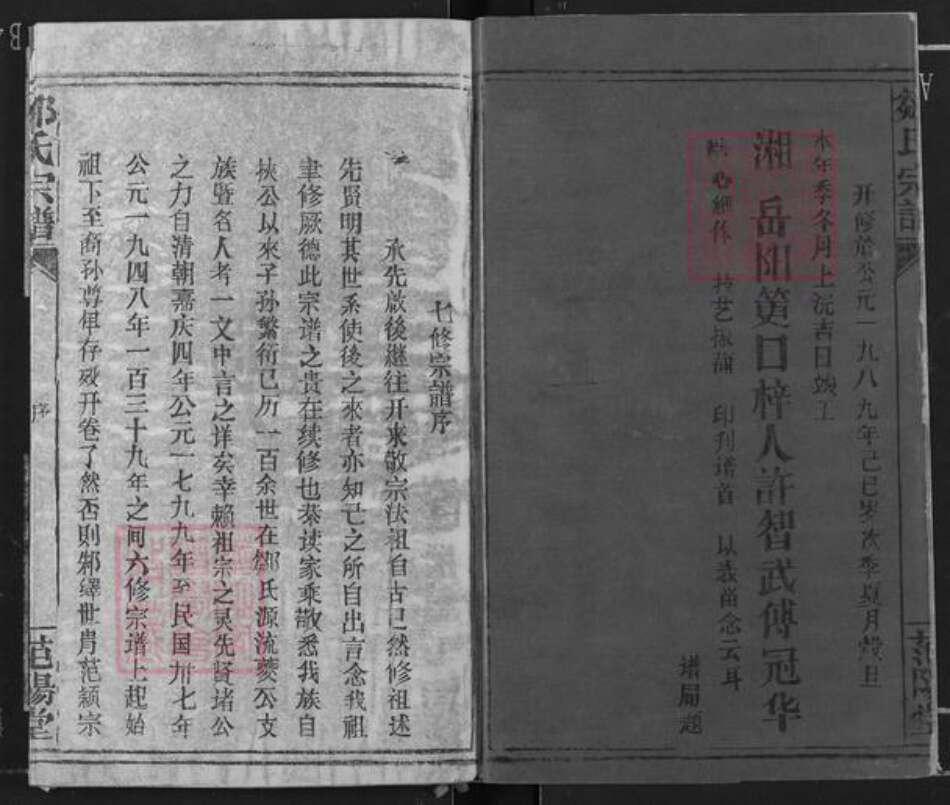 开修于公元一九八九年己巳岁次季夏月穀旦
本年季冬月上浣吉日竣工
湘岳阳筻口梓人許智武傅冠华
印刊谱首 以義留念云耳
谱局题
范陽堂
七修宗譜序
承先啟後继往开来敬宗法祖自古已然修祖述
先贤明其世系使後之來者亦知己之所自出言念我祖
聿修厥德此宗谱之贵在续修也恭读家乘敬悉我族自
挟公以來子孙繁衍已历一百余世在邹氏源流蒌公支
族暨名人考一文中言之详矣幸赖祖宗之灵先贤诸公
之力自清朝嘉庆四年公元一七九九年至民国卅七年
公元一九四八年一百三十九年之间六修宗谱上起始
祖下至裔孙尊卑存殁开卷了然否则邹绎世貴范颍宗
宗譜
序
范陽堂